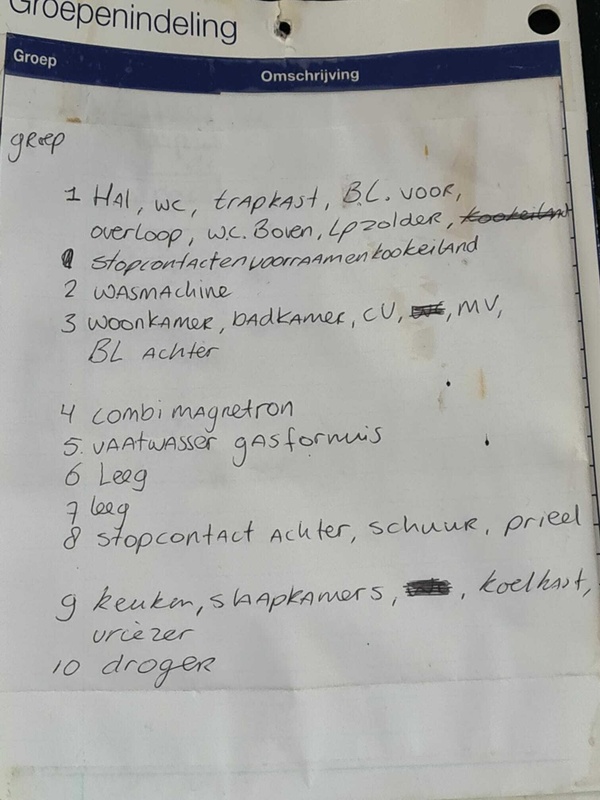 Groepenindeling
Groep Omschrijving
groep
1 Hal, wc, trapkast, B.L. voor,
overloop, w.c. Boven, Lp zolder, kookeiland
1 stopcontacten voorraam en kookeiland
2 wasmachine
3 woonkamer, badkamer, CV, MV,
BL Achter
4 combi magnetron
5. vaatwasser gasfornuis
6 Leeg
7 leeg
8 stopcontact Achter, schuur, prieel
9 keuken, slaapkamers, , koelkast,
vriezer
10 droger